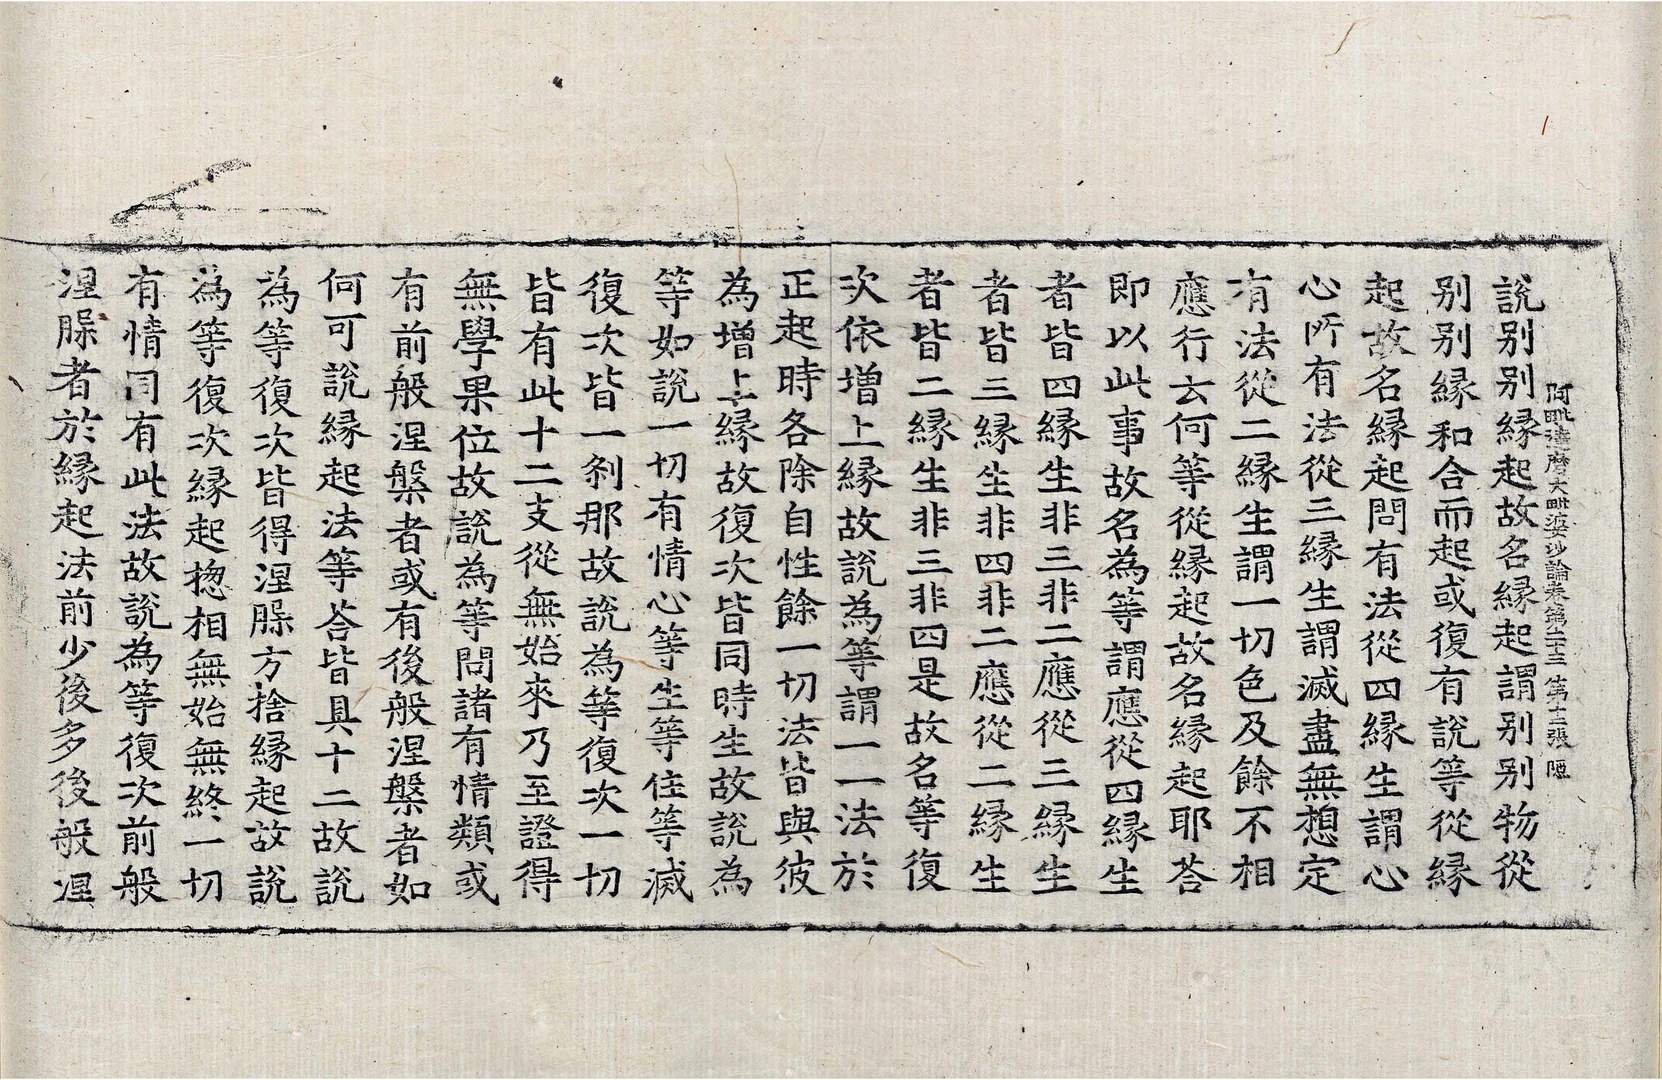 阿毗達磨大毗婆沙論卷第二十三 第十二張 陋
說別別緣起故名緣起謂別別物從
別別緣和合而起或復有說等從緣
起故名緣起問有法從四緣生謂心
心所有法從三緣生謂滅盡無想定
有法從二緣生謂一切色及餘不相
應行云何等從緣起故名緣起耶荅
即以此事故名為等謂應從四緣生
者皆四緣生非三非二應從三緣生
者皆三緣生非四非二應從二緣生
者皆二緣生非三非四是故名等復
次依增上緣故說為等謂一一法於
正起時各除自性餘一切法皆與彼
為增上緣故復次皆同時生故說為
等如說一切有情心等生等住等滅
復次皆一剎那故說為等復次一切
皆有此十二支從無始來乃至證得
無學果位故說為等問諸有情類或
有前般涅槃者或有後般涅槃者如
何可說緣起法等荅皆具十二故說
為等復次皆得涅槃方捨緣起故說
為等復次緣起捴相無始無終一切
有情同有此法故說為等復次前般
涅槃者於緣起法前少後多後般涅